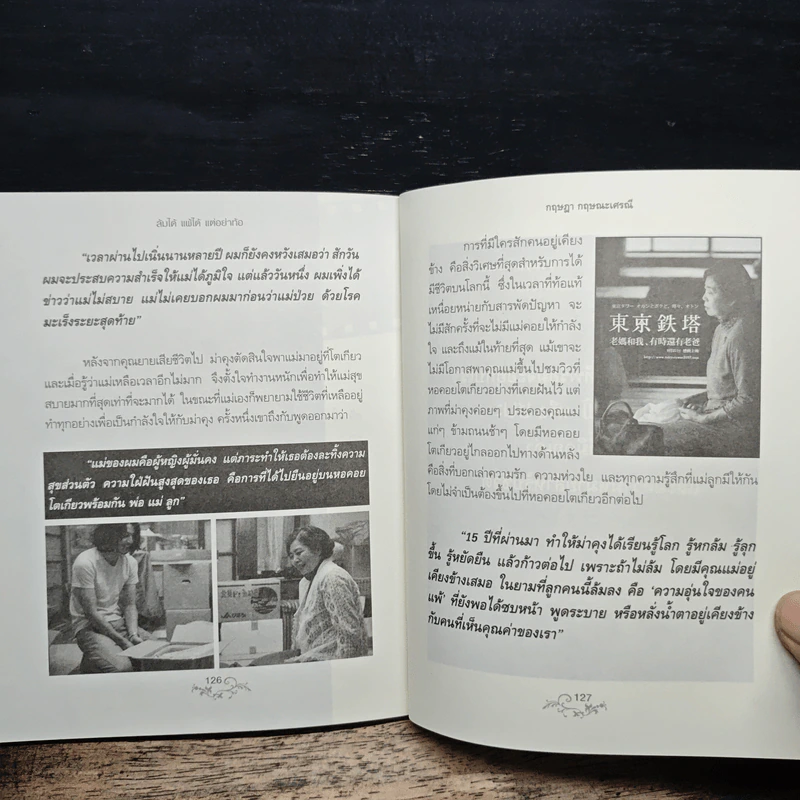 ล้มได้ แพ้ได้ แต่อย่าท้อ
"เวลาผ่านไปเนิ่นนานหลายปี ผมก็ยังคงหวังเสมอว่า สักวัน
ผมจะประสบความสำเร็จให้แม่ได้ภูมิใจ แต่แล้ววันหนึ่ง ผมเพิ่งได้
ข่าวว่าแม่ไม่สบาย แม่ไม่เคยบอกผมมาก่อนว่าแม่ป่วย ด้วยโรค
มะเร็งระยะสุดท้าย"
หลังจากคุณยายเสียชีวิตไป ม่าคุงตัดสินใจพาแม่มาอยู่ที่โตเกียว
และเมื่อรู้ว่าแม่เหลือเวลาอีกไม่มาก จึงตั้งใจทำงานหนักเพื่อทำให้แม่สุข
สบายมากที่สุดเท่าที่จะมากได้ ในขณะที่แม่เองก็พยายามใช้ชีวิตที่เหลืออยู่
ทำทุกอย่างเพื่อเป็นกำลังใจให้กับม่าคุง ครั้งหนึ่งเขาถึงกับพูดออกมาว่า
"แม่ของผมคือผู้หญิงผู้มั่นคง แต่ภาระทำให้เธอต้องละทิ้งความ
สุขส่วนตัว ความใฝ่ฝันสูงสุดของเธอ คือการที่ได้ไปยืนอยู่บนหอคอย
โตเกียวพร้อมกัน พ่อ แม่ ลูก"
126
กฤษฎา กฤษณะเศรณี
การที่มีใครสักคนอยู่เคียง
ข้าง คือสิ่งวิเศษที่สุดสำหรับการได้
มีชีวิตบนโลกนี้ ซึ่งในเวลาที่ท้อแท้
เหนื่อยหน่ายกับสารพัดปัญหา จะ
ไม่มีสักครั้งที่จะไม่มีแม่คอยให้กำลัง
ใจ และถึงแม้ในท้ายที่สุด แม้เขาจะ
ไม่มีโอกาสพาคุณแม่ขึ้นไปชมวิวที่
หอคอยโตเกียวอย่างที่เคยฝันไว้ แต่
ภาพที่ม่าคุงค่อยๆ ประคองคุณแม่
แก่ๆ ข้ามถนนช้าๆ โดยมีหอคอย
โตเกียวอยู่ไกลออกไปทางด้านหลัง
คือสิ่งที่บอกเล่าความรัก ความห่วงใย และทุกความรู้สึกที่แม่ลูกมีให้กัน
โดยไม่จำเป็นต้องขึ้นไปที่หอคอยโตเกียวอีกต่อไป
東京鉄塔
老媽和我、有時還有老爸
"15 ปีที่ผ่านมา ทำให้ม่าคุงได้เรียนรู้โลก รู้หกล้ม รู้ลุก
ขึ้น รู้หยัดยืน แล้วก้าวต่อไป เพราะถ้าไม่ล้ม โดยมีคุณแม่อยู่
เคียงข้างเสมอ ในยามที่ลูกคนนี้ล้มลง คือ 'ความอุ่นใจของคน
แพ้' ที่ยังพอได้ซบหน้า พูดระบาย หรือหลั่งน้ำตาอยู่เคียงข้าง
กับคนที่เห็นคุณค่าของเรา"
127